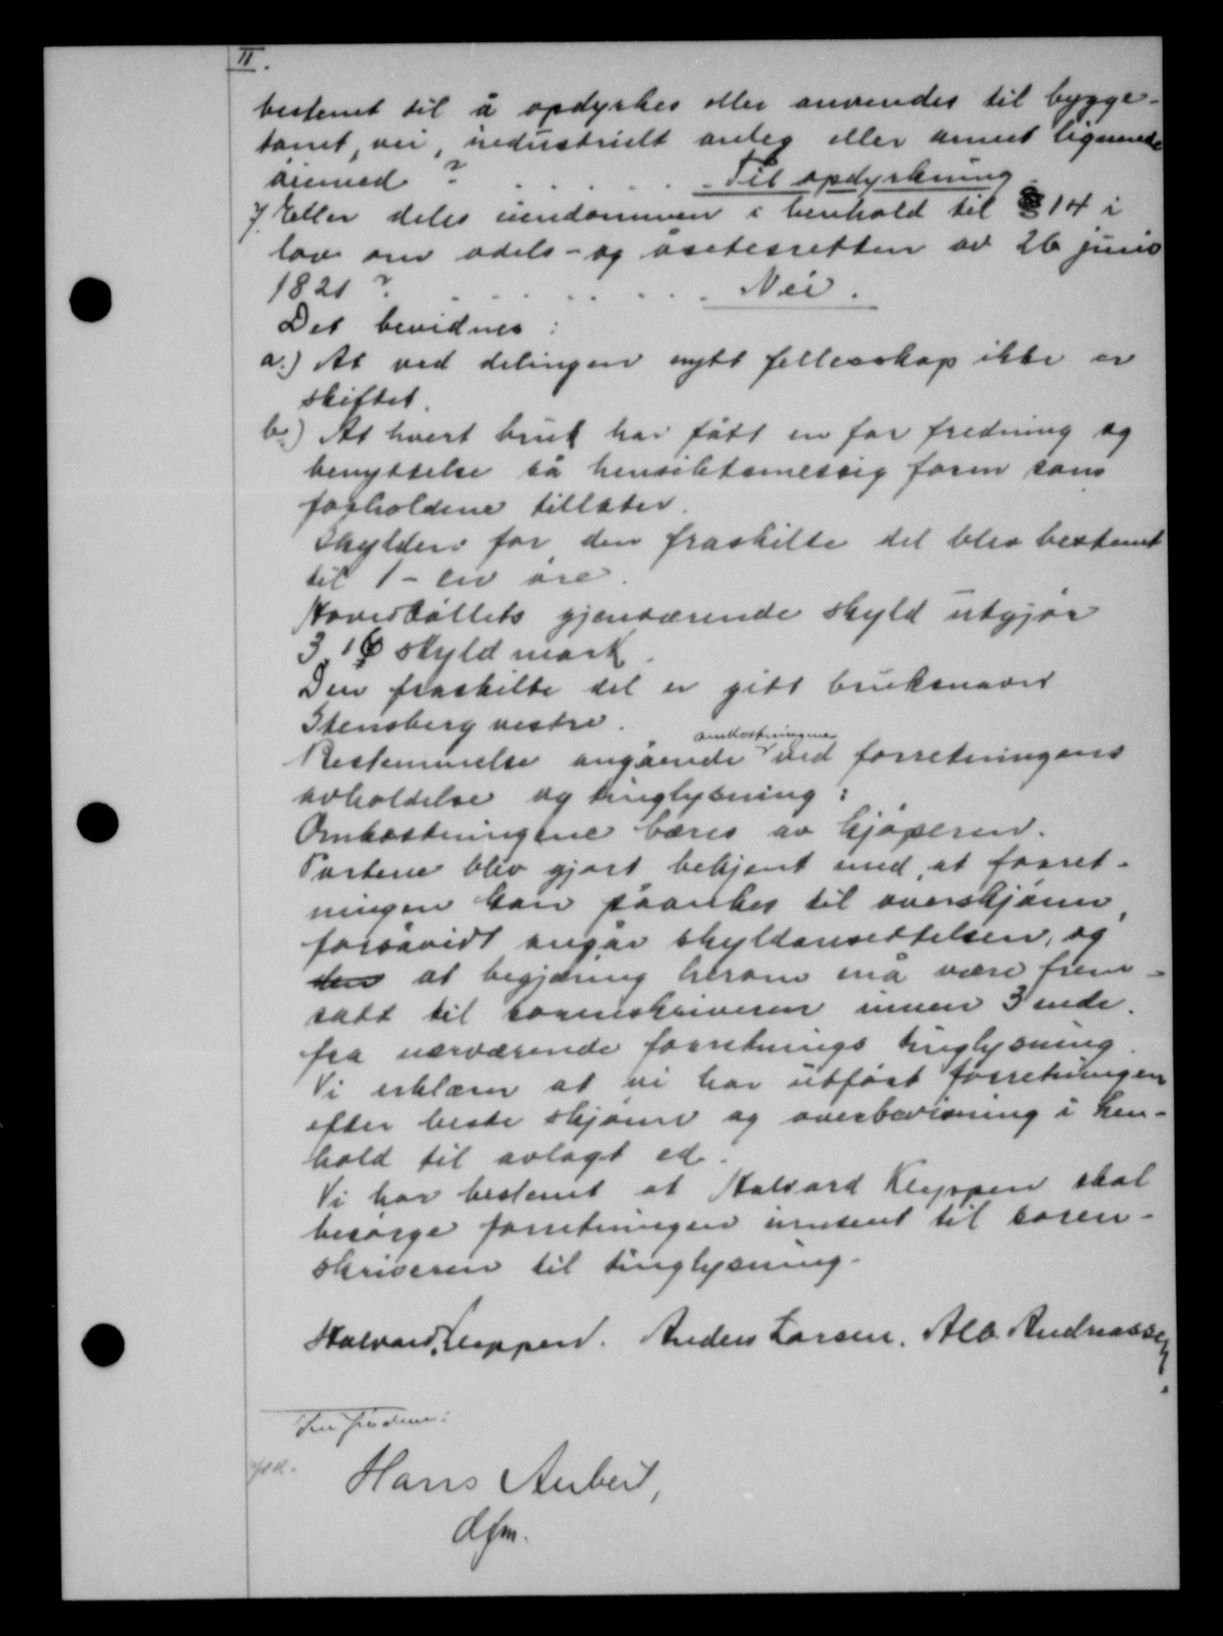 II.
bestemt til å opdyrkes eller anvendes til bygge-
tomt, vei, industrielt anleg eller annet lignende
øiemed ? . . . . . . Til opdyrkning
7. Eller deles eiendommen i henhold til § 14 i
lov om odels- og åsetesretten av 26 juni
1821 ? . . . . . . . Nei.
Det bevidnes :
a.) At ved delingen nytt fellesskap ikke er
stiftet.
b.) At hvert bruk har fått en for fredning og
benyttelse så hensiktsmessig form som
forholdene tillater.
Skylden for den fraskilte del blev bestemt
til 1 - en øre.
Hovedbøllets gjenværende skyld utgjør
3,16 skyld mark.
Den fraskilte del er gitt bruksnavn
Stensberg vestre.
omkostningene
Bestemmelse angående ved forretningens
avholdelse og tinglysning :
Omkostningene bæres av kjøperen.
Partene blev gjort bekjent med, at forret-
ningen kan påankes til overskjønn,
forsåvidt angår skyldansettelsen, og
den at begjæring herom må være frem-
satt til sorenskriveren innen 3 mdr.
fra nærværende forretnings tinglysning.
Vi erklærer at vi har utført forretningen
efter beste skjønn og overbevisning i hen-
hold til avlagt ed.
Vi har bestemt at Halvard Kleppen skal
besørge forretningen innsent til soren-
skriveren til tinglysning.
Halvard Kleppen. Anders Larsen. Alb. Andreassen.
Hans Aubert,
dfm.